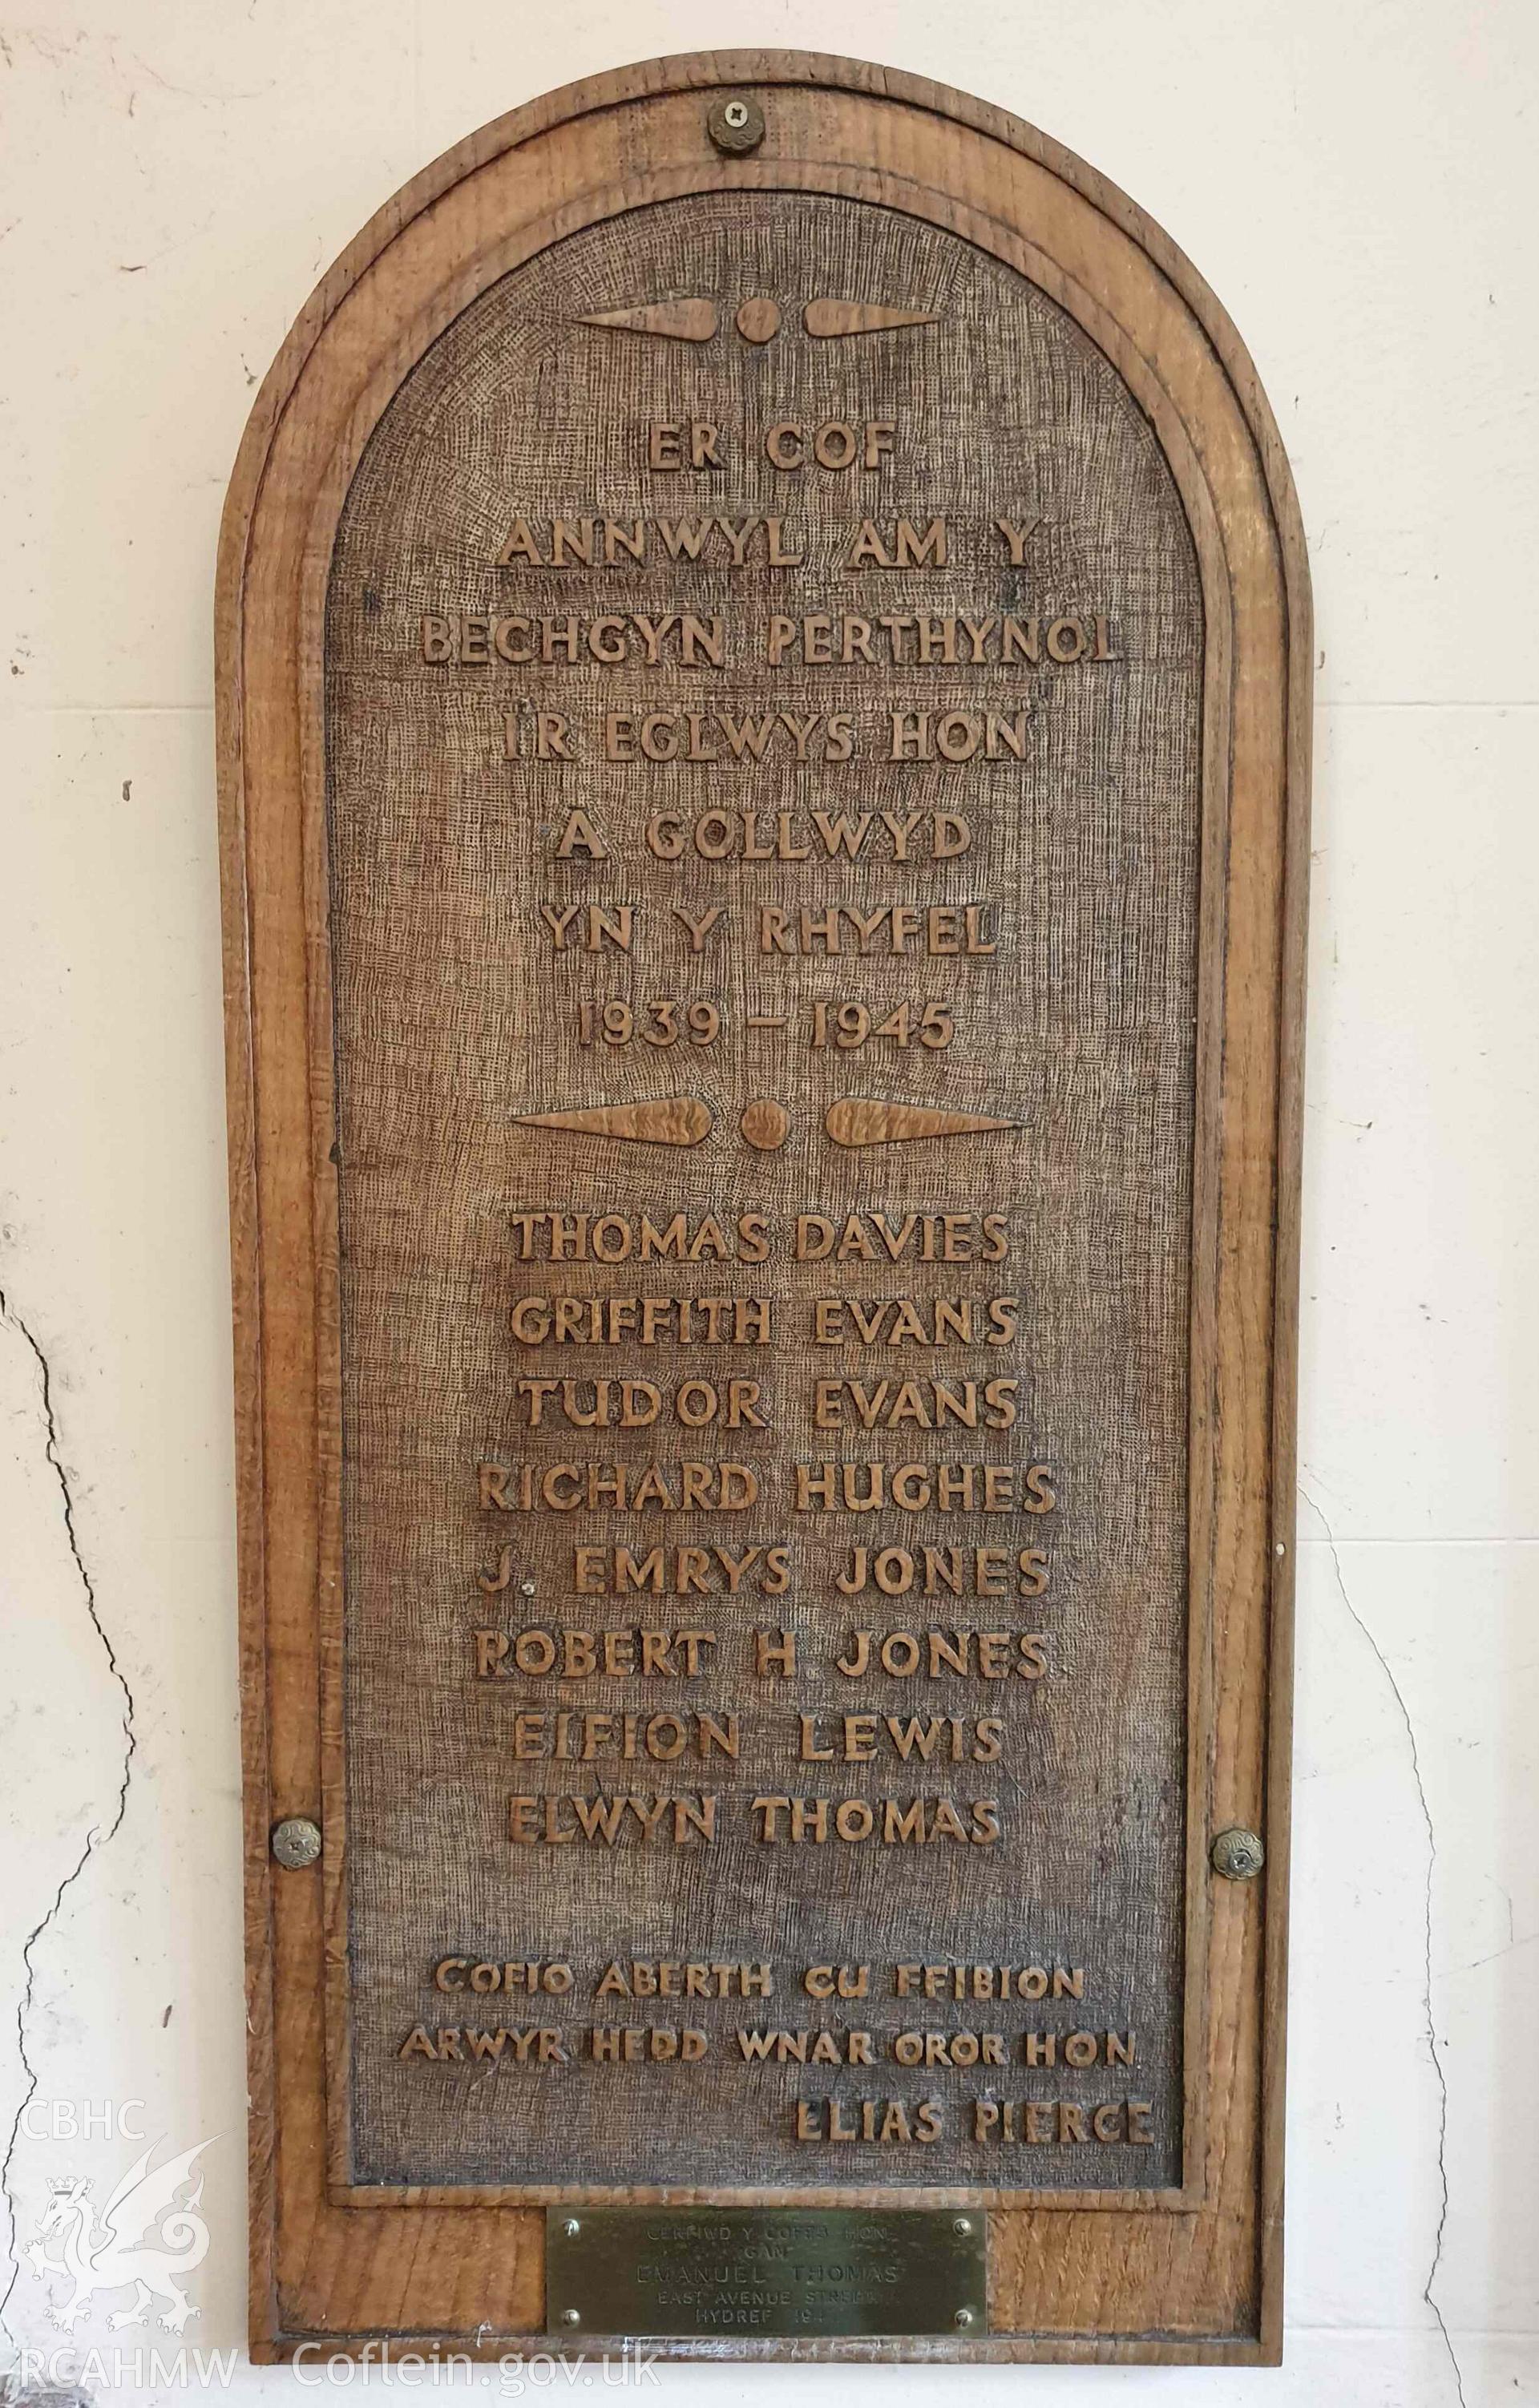 ER COF
ANNWYL AM Y
BECHGYN PERTHYNOL
I'R EGLWYS HON
A GOLLWYD
YN Y RHYFEL
1939 – 1945
THOMAS DAVIES
GRIFFITH EVANS
TUDOR EVANS
RICHARD HUGHES
J. EMRYS JONES
ROBERT H. JONES
EIFION LEWIS
ELWYN THOMAS
COFIO ABERTH CU FFIBION
ARWYR HEDD WNAR OROR HON
ELIAS PIERCE
CERFIWD Y COFEB HON
GAN
EMANUEL THOMAS
EAST AVENUE STREET
HYDREF
CBHC
RCAHMW Coflein.gov.uk